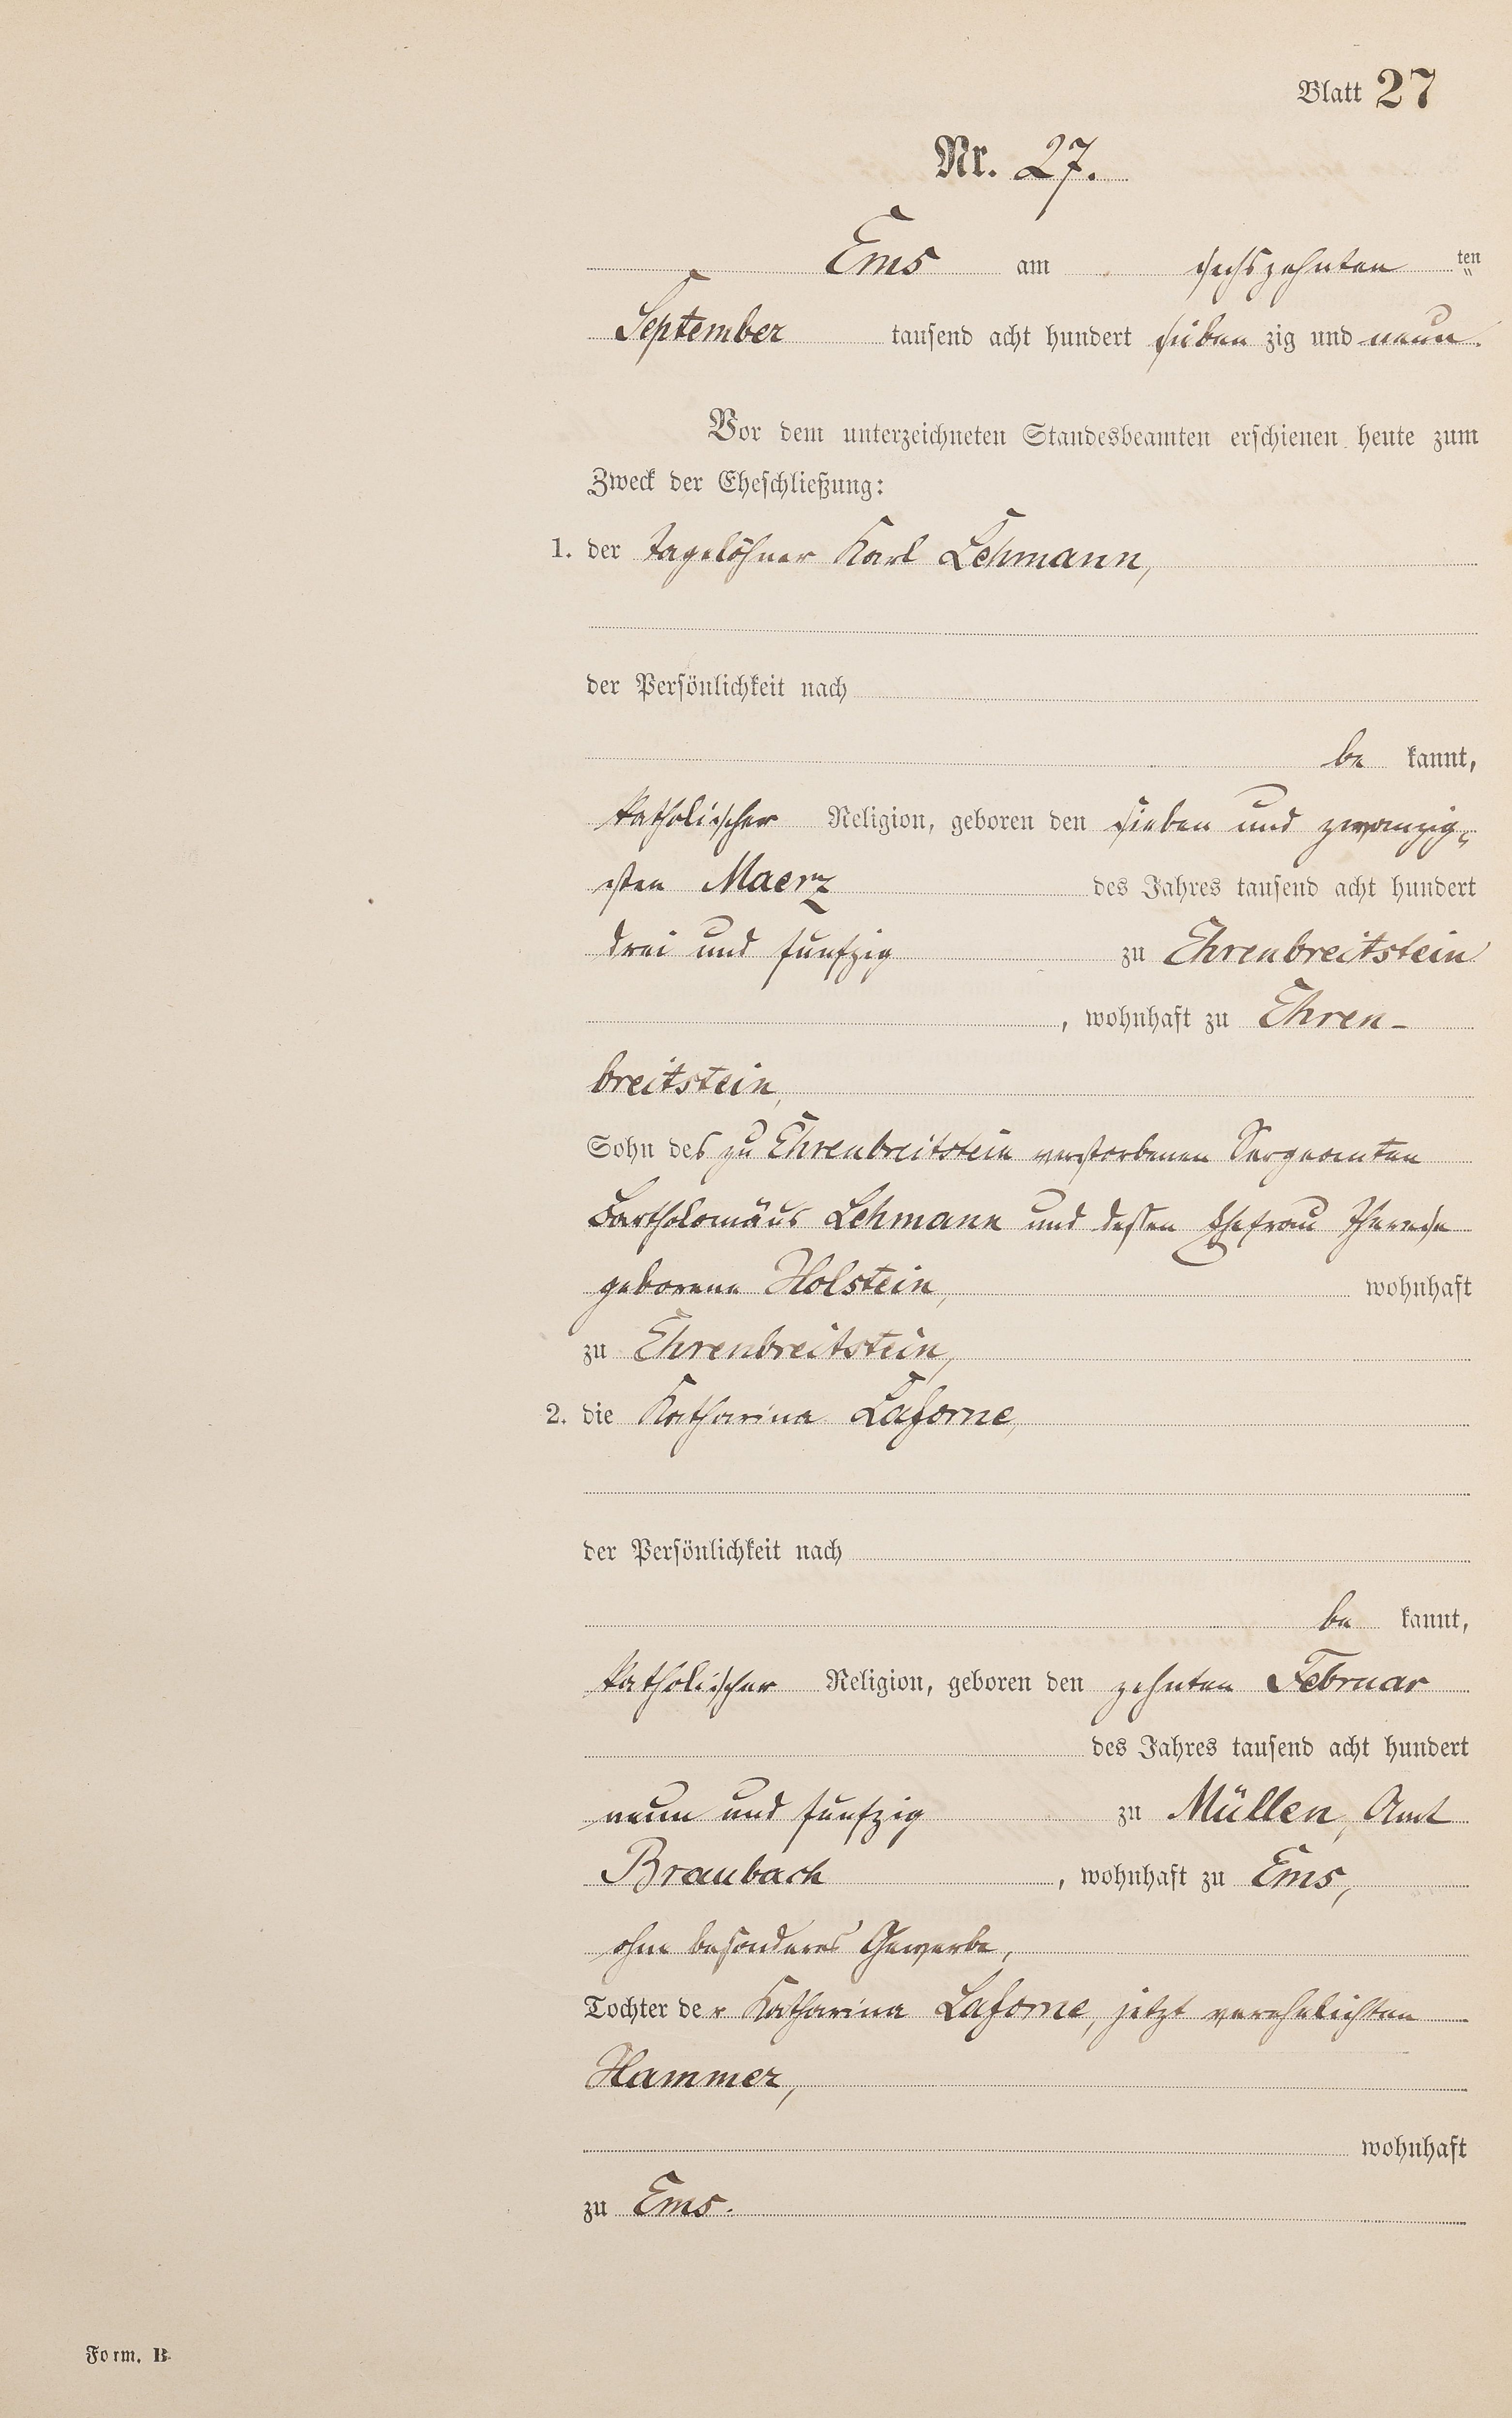 Blatt 27
Nr. 27.
Ems am sechszehnten ten
September tausend acht hundert sieben zig und neun.
Vor dem unterzeichneten Standesbeamten erschienen heute zum
Zweck der Eheschließung:
1. der Tagelöhner Karl Lehmann,
der Persönlichkeit nach
be kannt,
katholischer Religion, geboren den sieben und zwanzig-
sten Maerz des Jahres tausend acht hundert
drei und fünfzig zu Ehrenbreitstein
, wohnhaft zu Ehren-
breitstein,
Sohn des zu Ehrenbreitstein verstorbenen Sergeanten
Bartholomäus Lehmann und dessen Ehefrau Therese
geborene Holstein, wohnhaft
zu Ehrenbreitstein,
2. die Katharina Laforne,
der Persönlichkeit nach
be kannt,
katholischer Religion, geboren den zehnten Februar
des Jahres tausend acht hundert
neun und fünfzig zu Müllen, Amt
Braubach, wohnhaft zu Ems,
ohne besonderes Gewerbe,
Tochter der Katharina Laforne, jetzt verehelichten
Hammer,
wohnhaft
zu Ems.
Form. B.